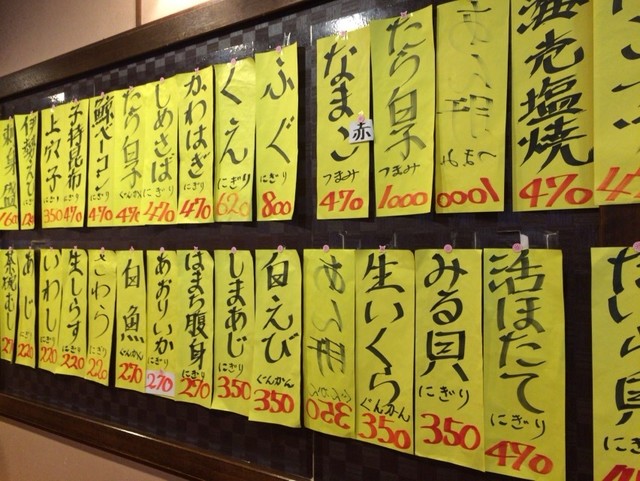 海老塩焼
470
1000
たら白子
つまみ
1000
なまこ
赤
つまみ
470
ふぐ
にぎり
800
くえ
にぎり
620
かわはぎ
にぎり
470
しめさば
にぎり
470
たら白子
ぐんかん
470
鯨ベーコン
にぎり
470
子持昆布
にぎり
470
上穴子
にぎり
350
伊勢えび
刺身盛
活ほたて
にぎり
470
みる貝
にぎり
350
生いくら
ぐんかん
350
350
白えび
ぐんかん
350
しまあじ
にぎり
350
はまち腹身
にぎり
270
あおりいか
にぎり
270
白魚
ぐんかん
270
さわら
にぎり
220
生しらす
にぎり
220
いわし
にぎり
220
あじ
にぎり
220
茶碗むし